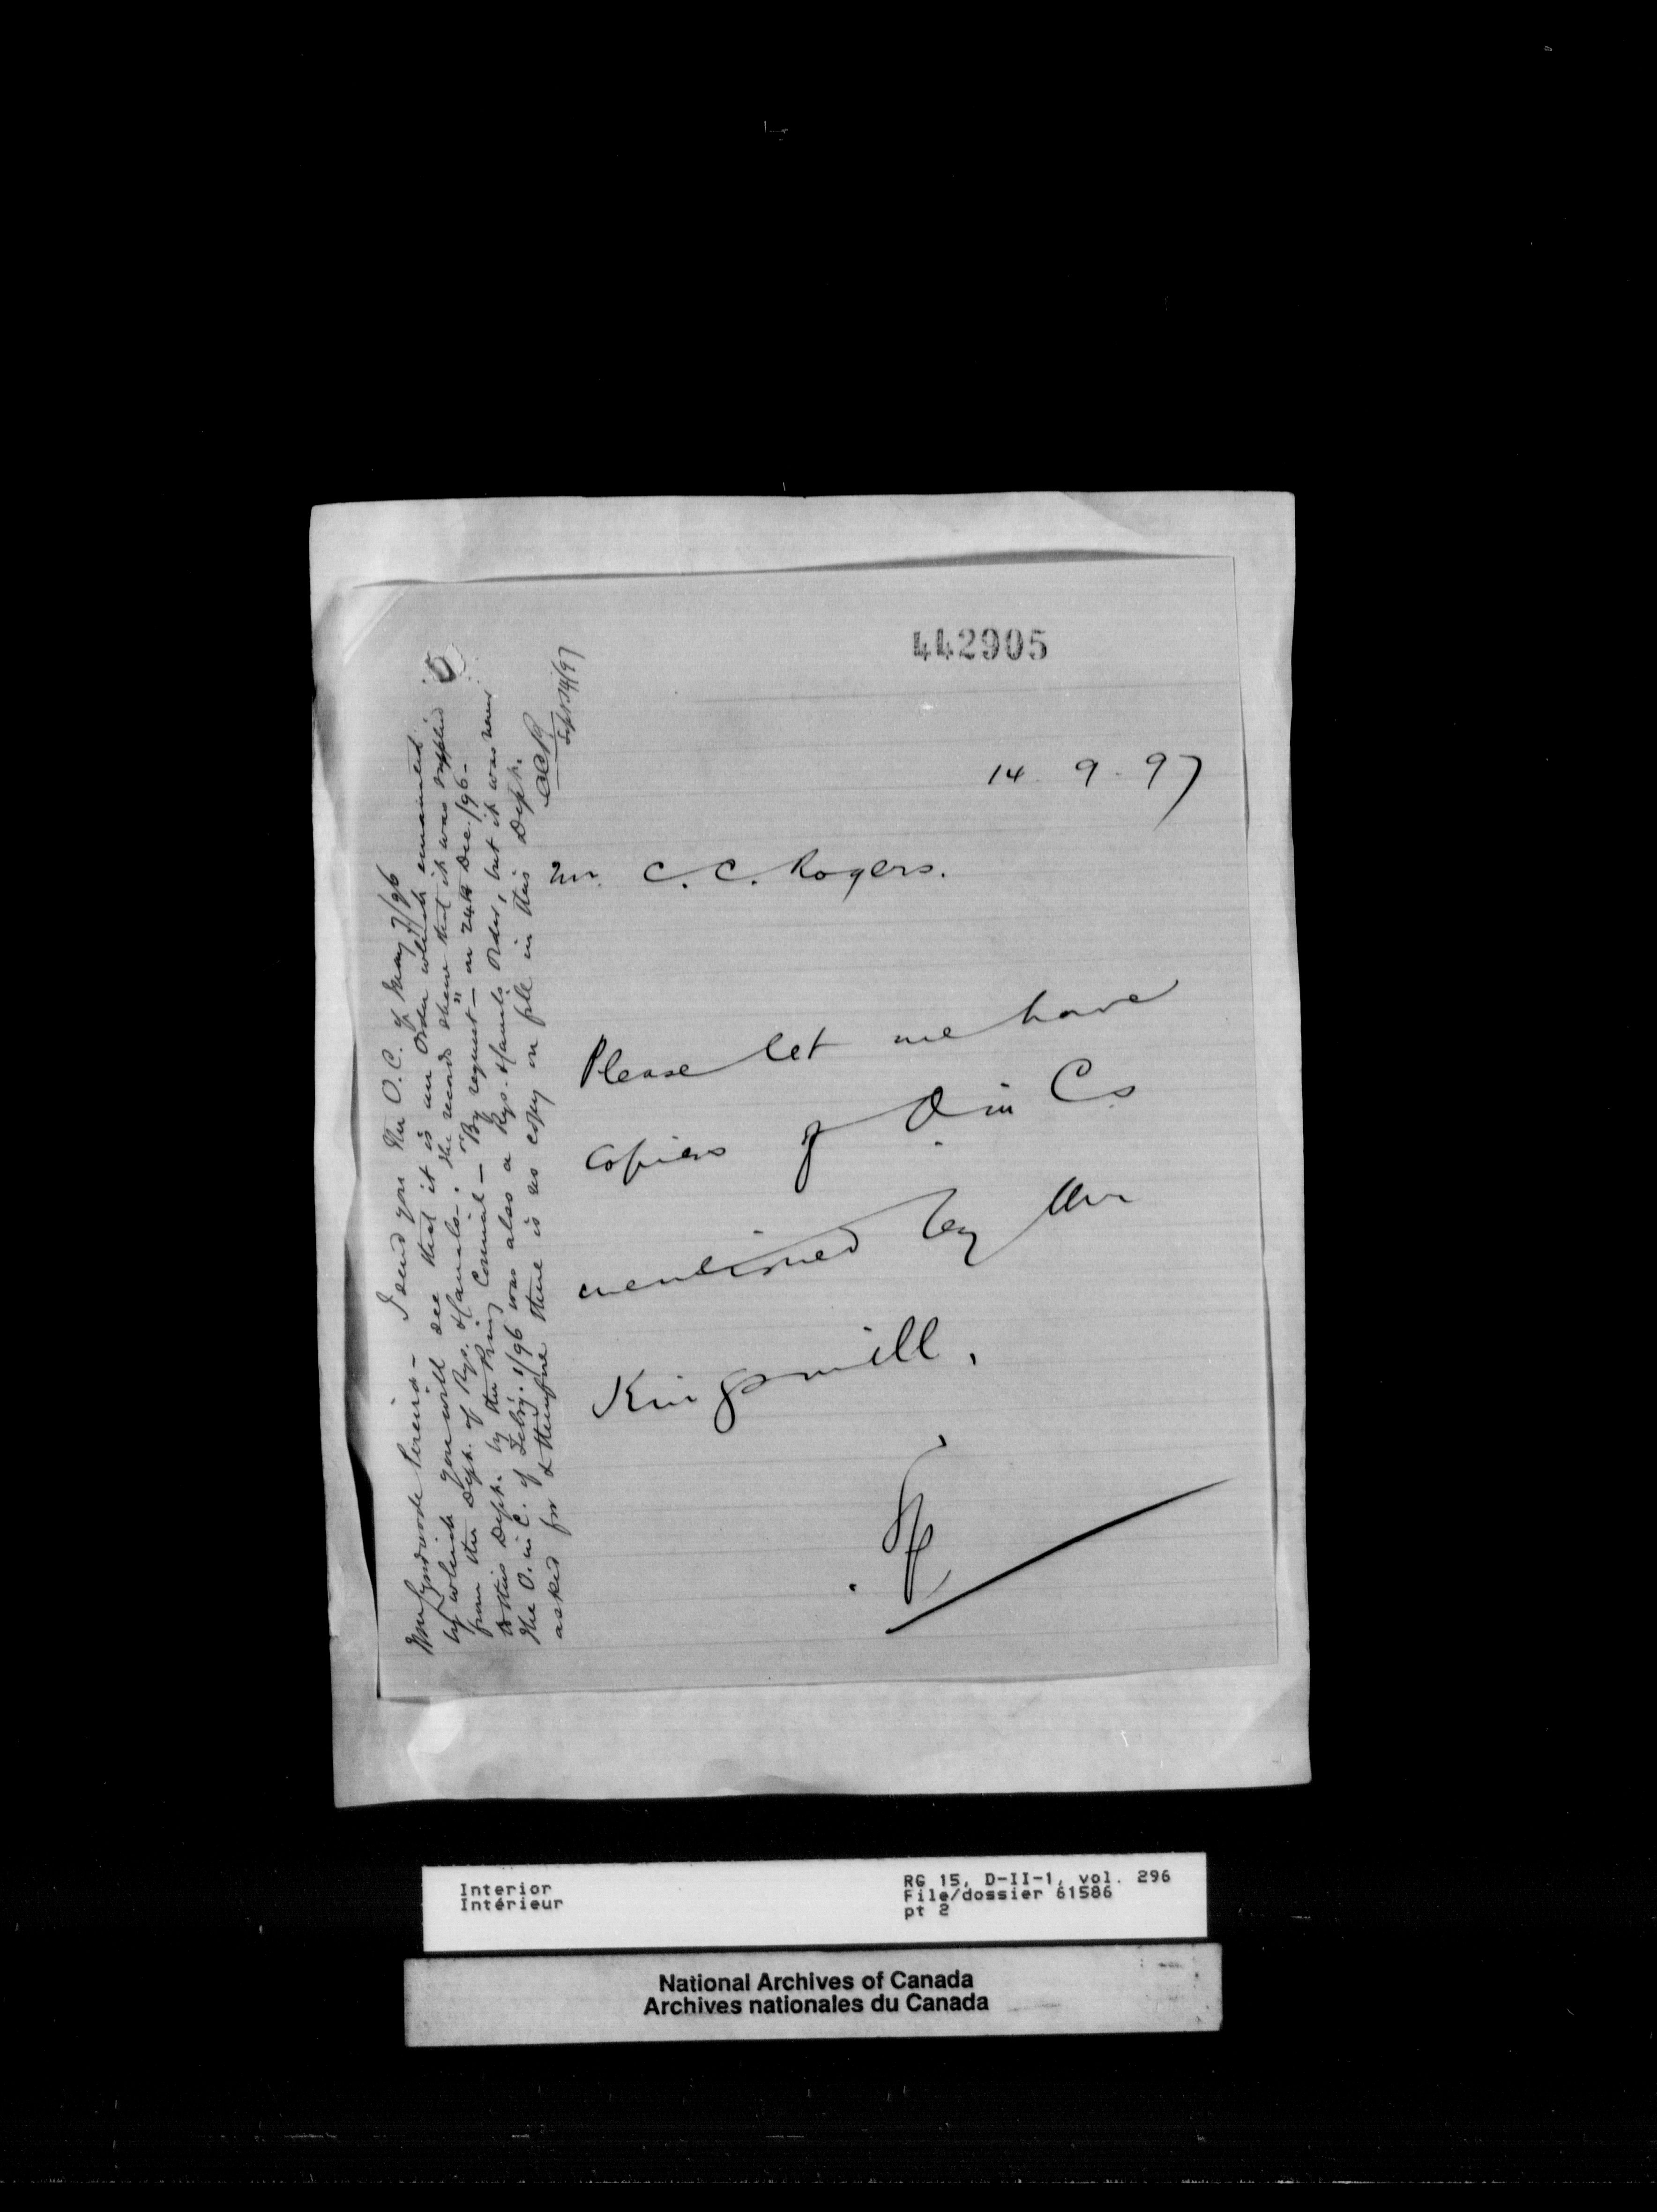 442905
14. 9. 97
Mr. C. C. Rogers.
Please let me have
copies of O in Cs
mentioned by Mr
Kingsmill.
Mr Lyndwode Pereira - I send you the O.C. of May 7/96
by which you will see that it is an Order which emanated
from the Dept. of Rys. & Canals. The records shew that it was supplied
to this Dept. by the Privy Council - "By request" - on 24th Dec./96 -
The O. in C. of Feby. 1/96 was also a Rys. & Canals Order, but it was never
asked for & therefore there is no copy on file in this Dept.
CCR
Sept 14/97
Interior
Intérieur
RG 15, D-II-1, vol. 296
File/dossier 61586
pt 2
National Archives of Canada
Archives nationales du Canada